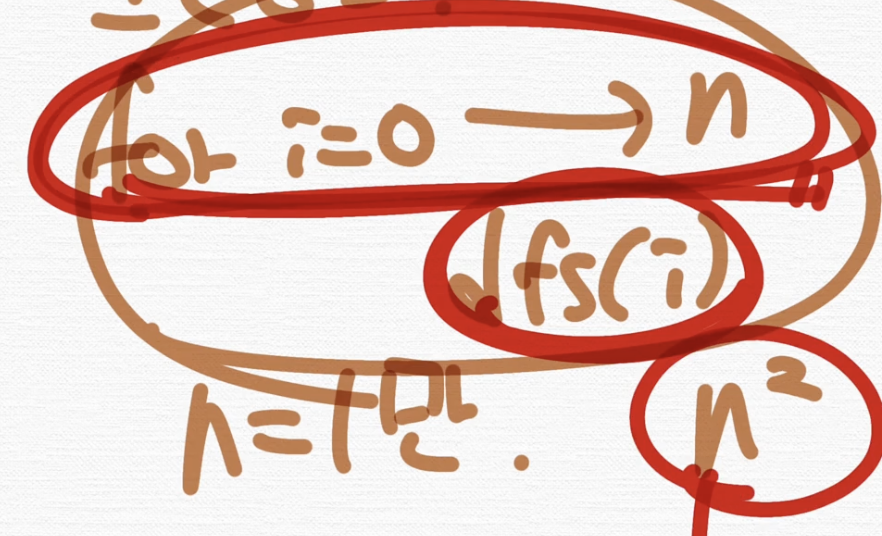 for i=0 → n
dfs(i)
n=1만.
n²